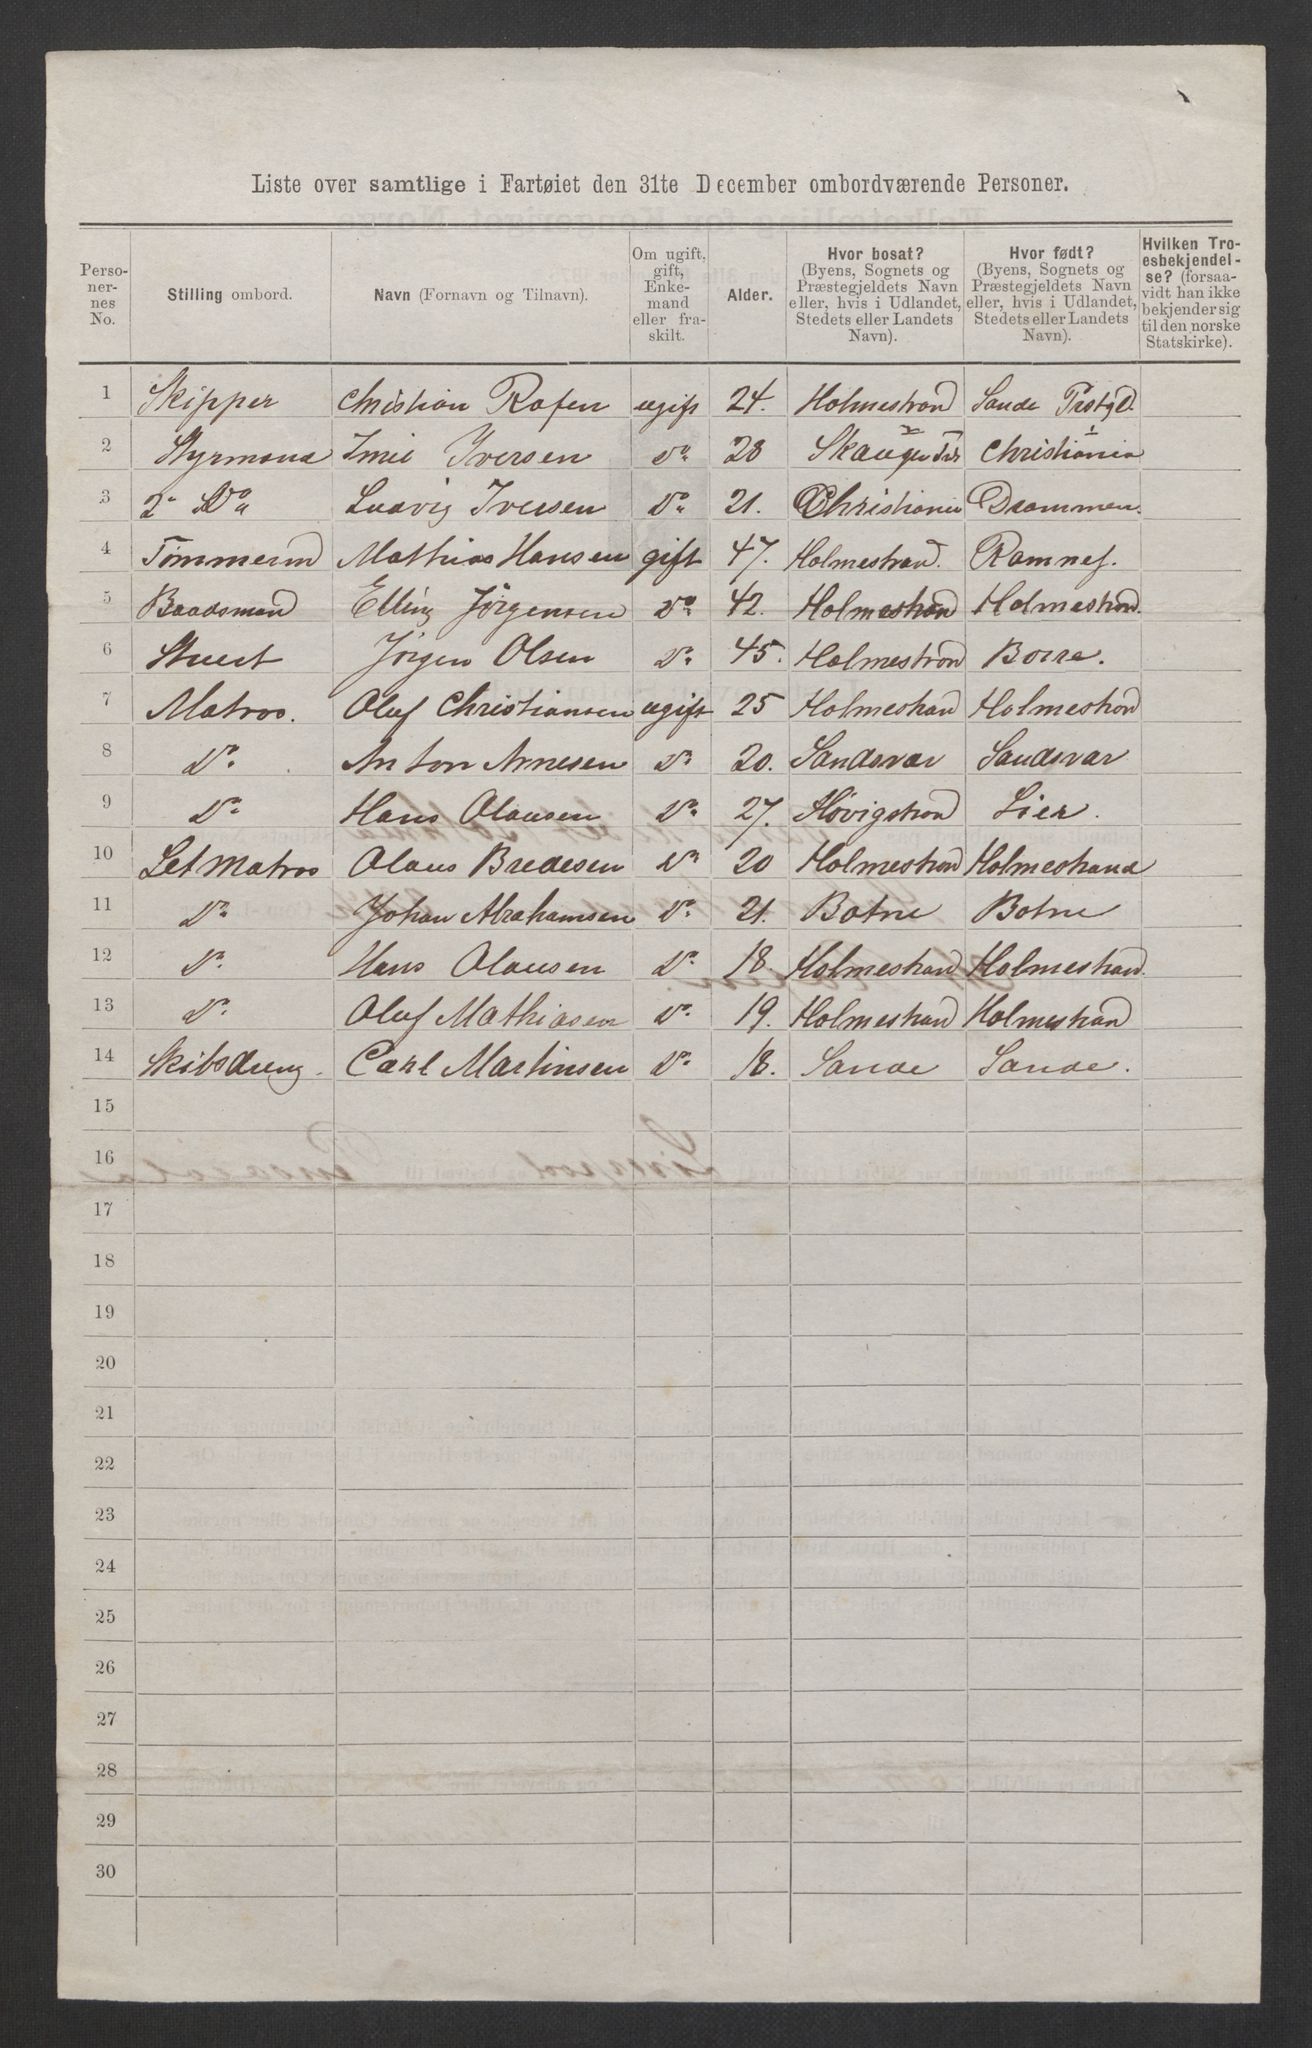 Liste over samtlige i Fartøiet den 31te December ombordværende Personer.
Perso-
ner-
nes
No.
Stilling ombord.
Navn (Fornavn og Tilnavn).
Om ugift,
gift,
Enke-
mand
eller fra-
skilt.
Alder.
Hvor bosat?
(Byens, Sognets og
Præstegjeldets Navn
eller, hvis i Udlandet,
Stedets eller Landets
Navn).
Hvor født?
(Byens, Sognets og
Præstegjeldets Navn
eller, hvis i Udlandet,
Stedets eller Landets
Navn).
Hvilken Tro-
esbekjendel-
se? (forsaa-
vidt han ikke
bekjender sig
til den norske
Statskirke).
1 Skipper Christian Rafen ugift 24. Holmestrand Sande
2 Styrmand Iver Iversen Do 28 Christiania
3 2n Do Ludvig Iversen Do 21. Christiania Drammen.
4 Tømmermd Mathias Hansen gift 47. Holmestrand. Ramnes.
5 Baadsmand Elling Jörgensen Do 42. Holmestrand Holmestrand.
6 Stuert Jörgen Olsen Do 45. Holmestrand Borre.
7 Matros. Oluf Christiansen ugift 25 Holmestrand Holmestrand
8 Do Anton Arnesen Do 20. Sandsvær Sandsvær
9 Do Hans Olausen Do 27. Hövigstrand Lier.
10 Let Matros Olaus Bredesen Do 20 Holmestrand Holmestrand
11 Do Johan Abrahamsen Do 21. Botne Botne
12 Do Hans Olausen Do 18. Holmestrand Holmestrand.
13 Do Oluf Mathiasen Do 19. Holmestrand Holmestrand
14 Skibsdreng. Carl Martinsen Do 18. Sande Sande.
15
16
17
18
19
20
21
22
23
24
25
26
27
28
29
30